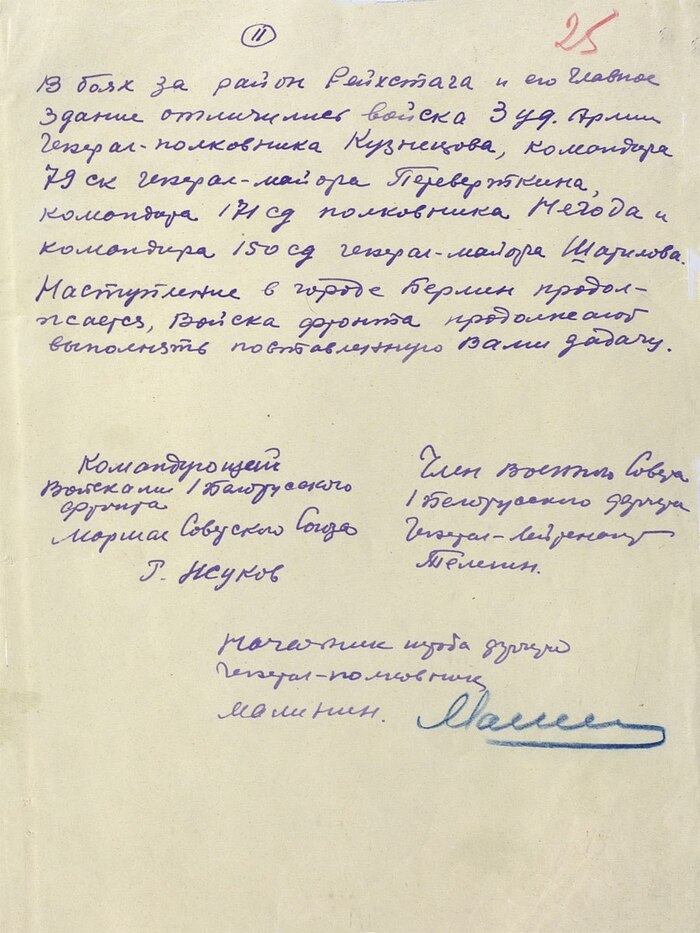 11
25
В боях за район Рейхстага и его главное
здание отличились войска 3 уд. Армии
генерал-полковника Кузнецова, командира
79 ск генерал-майора Переверткина,
командира 171 сд полковника Негода и
командира 150 сд генерал-майора Шатилова.
Наступление в городе Берлин продол-
жается, Войска фронта продолжают
выполнять поставленную Вами задачу.
Командующий
Войсками 1 Белорусского
фронта
Маршал Советского Союза
Г. Жуков
Член Военного Совета
1 Белорусского фронта
Генерал-лейтенант
Телегин.
Начальник штаба фронта
генерал-полковник
Малинин.